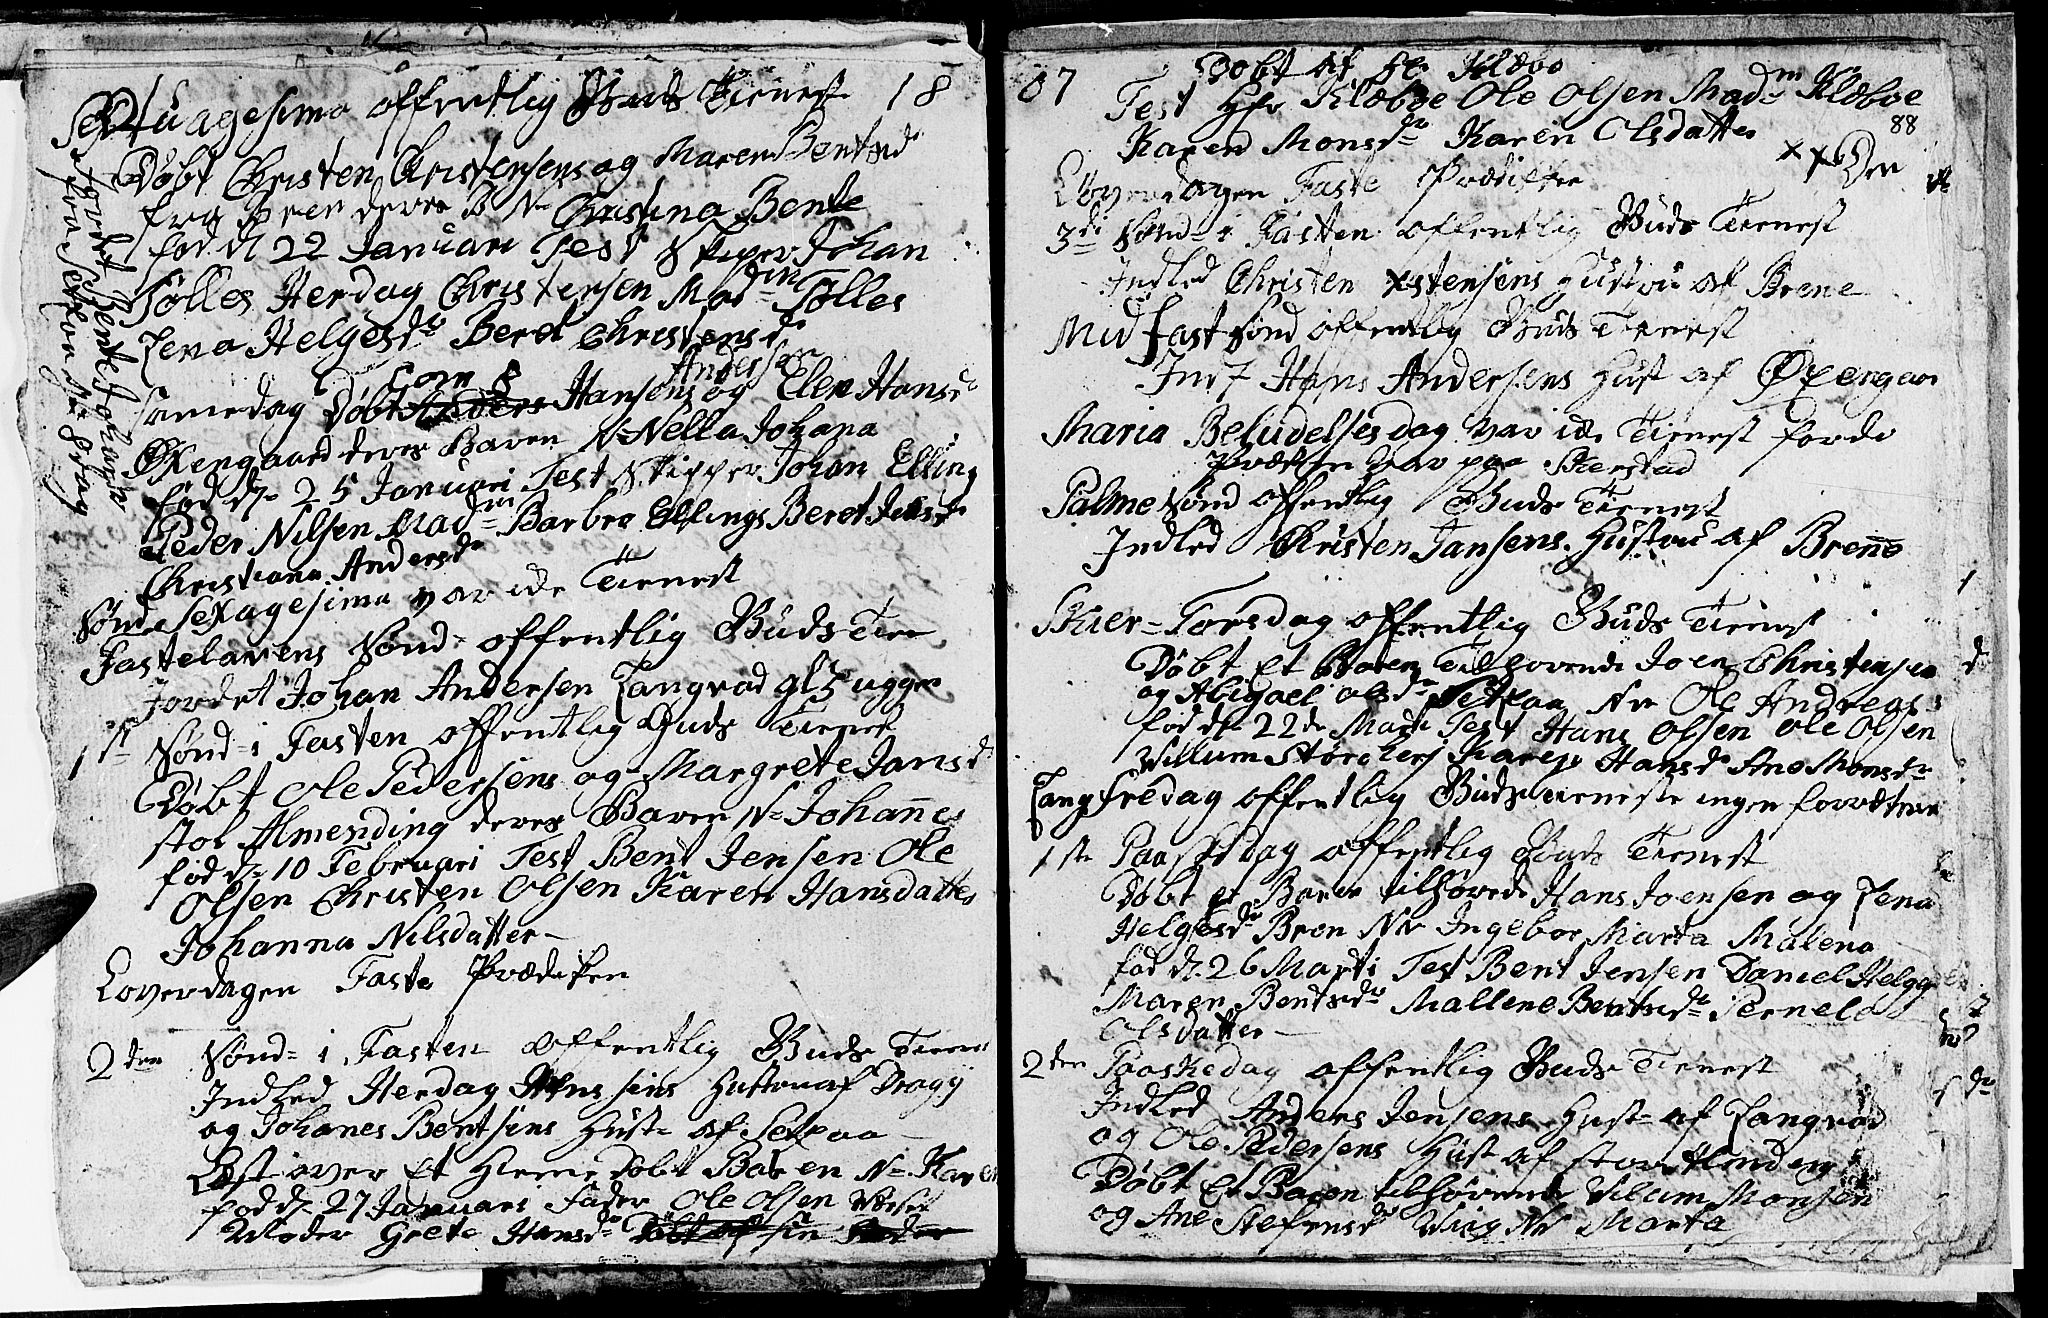 Septuagesima offentlig Guds Tienest 18
Døbt Christen Christensens og Maren Bentsd
fra Bren deres B N- Christina Bente
fød d 22 Januari Test Skiper Johan
Tølles Herdag Christensen Mad-m Tølles
Lena Helgesdr Beret Christensd
Andersen
samedag Døbt Hansens og Elen Hansd
Øxengaard deres Baren N- Nella Johana
fød d- 25 Januari Test Skipper Johan Elling
Peder Nilsen Mad-m Barbro Ellings Beret Jensd
Christiana Andersdr
Sønd Sexagesima var ide Tienest
Fastelavens Sønd- offentlig Guds Tiene
Jordet Johan Andersen Langvad gl 3 uger
1st Sønd- i Fasten offentlig Guds Tienest
Døbt Ole Pedersens og Margrete Jansd
stor Almending deres Baren N- Johannes
fød d- 10 Februari Test Bent Jensen Ole
Olsen Christen Olsen Karen Hansdatter
Johanna Nilsdatter-
Løverdagen Faste Prædiken
2den Sønd- i Fasten offentlig Guds Tienes
Indled Herdag Hustru af Dragø
og Johanes Bentsens Hust- af Setraa
Lest over et Hieme døbt Baren N- Karen
fød d- 27 Januari Fader Ole Olsen
Moder Grete Hansd- Døbt af sin Fader
Jordet Bente Johans
fra Setraa
87 Døbt af Hr Klæbo
Test Hr Klæboe Ole Olsen Mad-m Klæboe
88
Karen Monsdr Karen Olsdatter
Løverdagen Faste Prædiken
3die Sønd- i Fasten offentlig Guds Tienest
Indled Christen Xstensens Hustru af Brene
Mid fast Sønd offentlig Guds Tienest
Ind Hans Andersens Hust af Øxengaar
Maria Beludelses dag var ide Tienest forde
Præsten var paa Skierstad
Palme Sønd offentlig Guds Tienest
Indled Christen Jansens Hustru af Brenne
Skier-Torsdag offentlig Guds Tienest
Døbt et Baren Tilhørende Joen Christensen
og Abigael Olsdr Setraa Nv Ole Andreas
fød d- 22de Marti Test Hans Olsen Ole Olsen
Villum Størchers Karen Hansd Ane Monsdr
Langfredag offentlig Guds tieneste ingen forrætning
1ste Paaskedag offentlig Guds Tienest
Døbt et Baren tilhørende Hans Joensen og Lena
Helgesdr Bren Nv Ingebor Marta Malena
fød d- 26 Marti Test Bent Jensen Daniel Helge
Maren Bentsdr Mallene Bentsdr Pernela
Olsdatter-
2den Paaskedag offentlig Guds Tienest
Indled Anders Jensens Hust- af Langvad
og Ole Pedersens Hust af stor Almding
Døbt Et Baren tilhørende Vilum Monsen
og Ane Stefensdr Viig Nv Marta